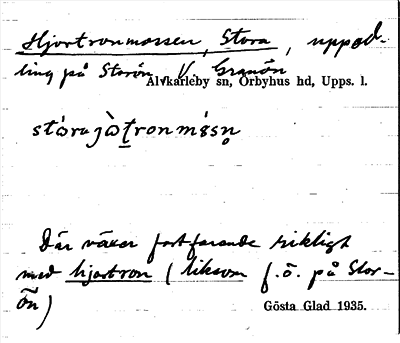 Hjortronmossen, Stora, uppod-
ling på Storön V. Granön
Älvkarleby sn, Örbyhus hd, Upps. l.
stóra jò̀t̠ronmósn̥
Där växer fortfarande rikligt
med hjortron (liksom f.ö. på Stor-
ön)
Gösta Glad 1935.